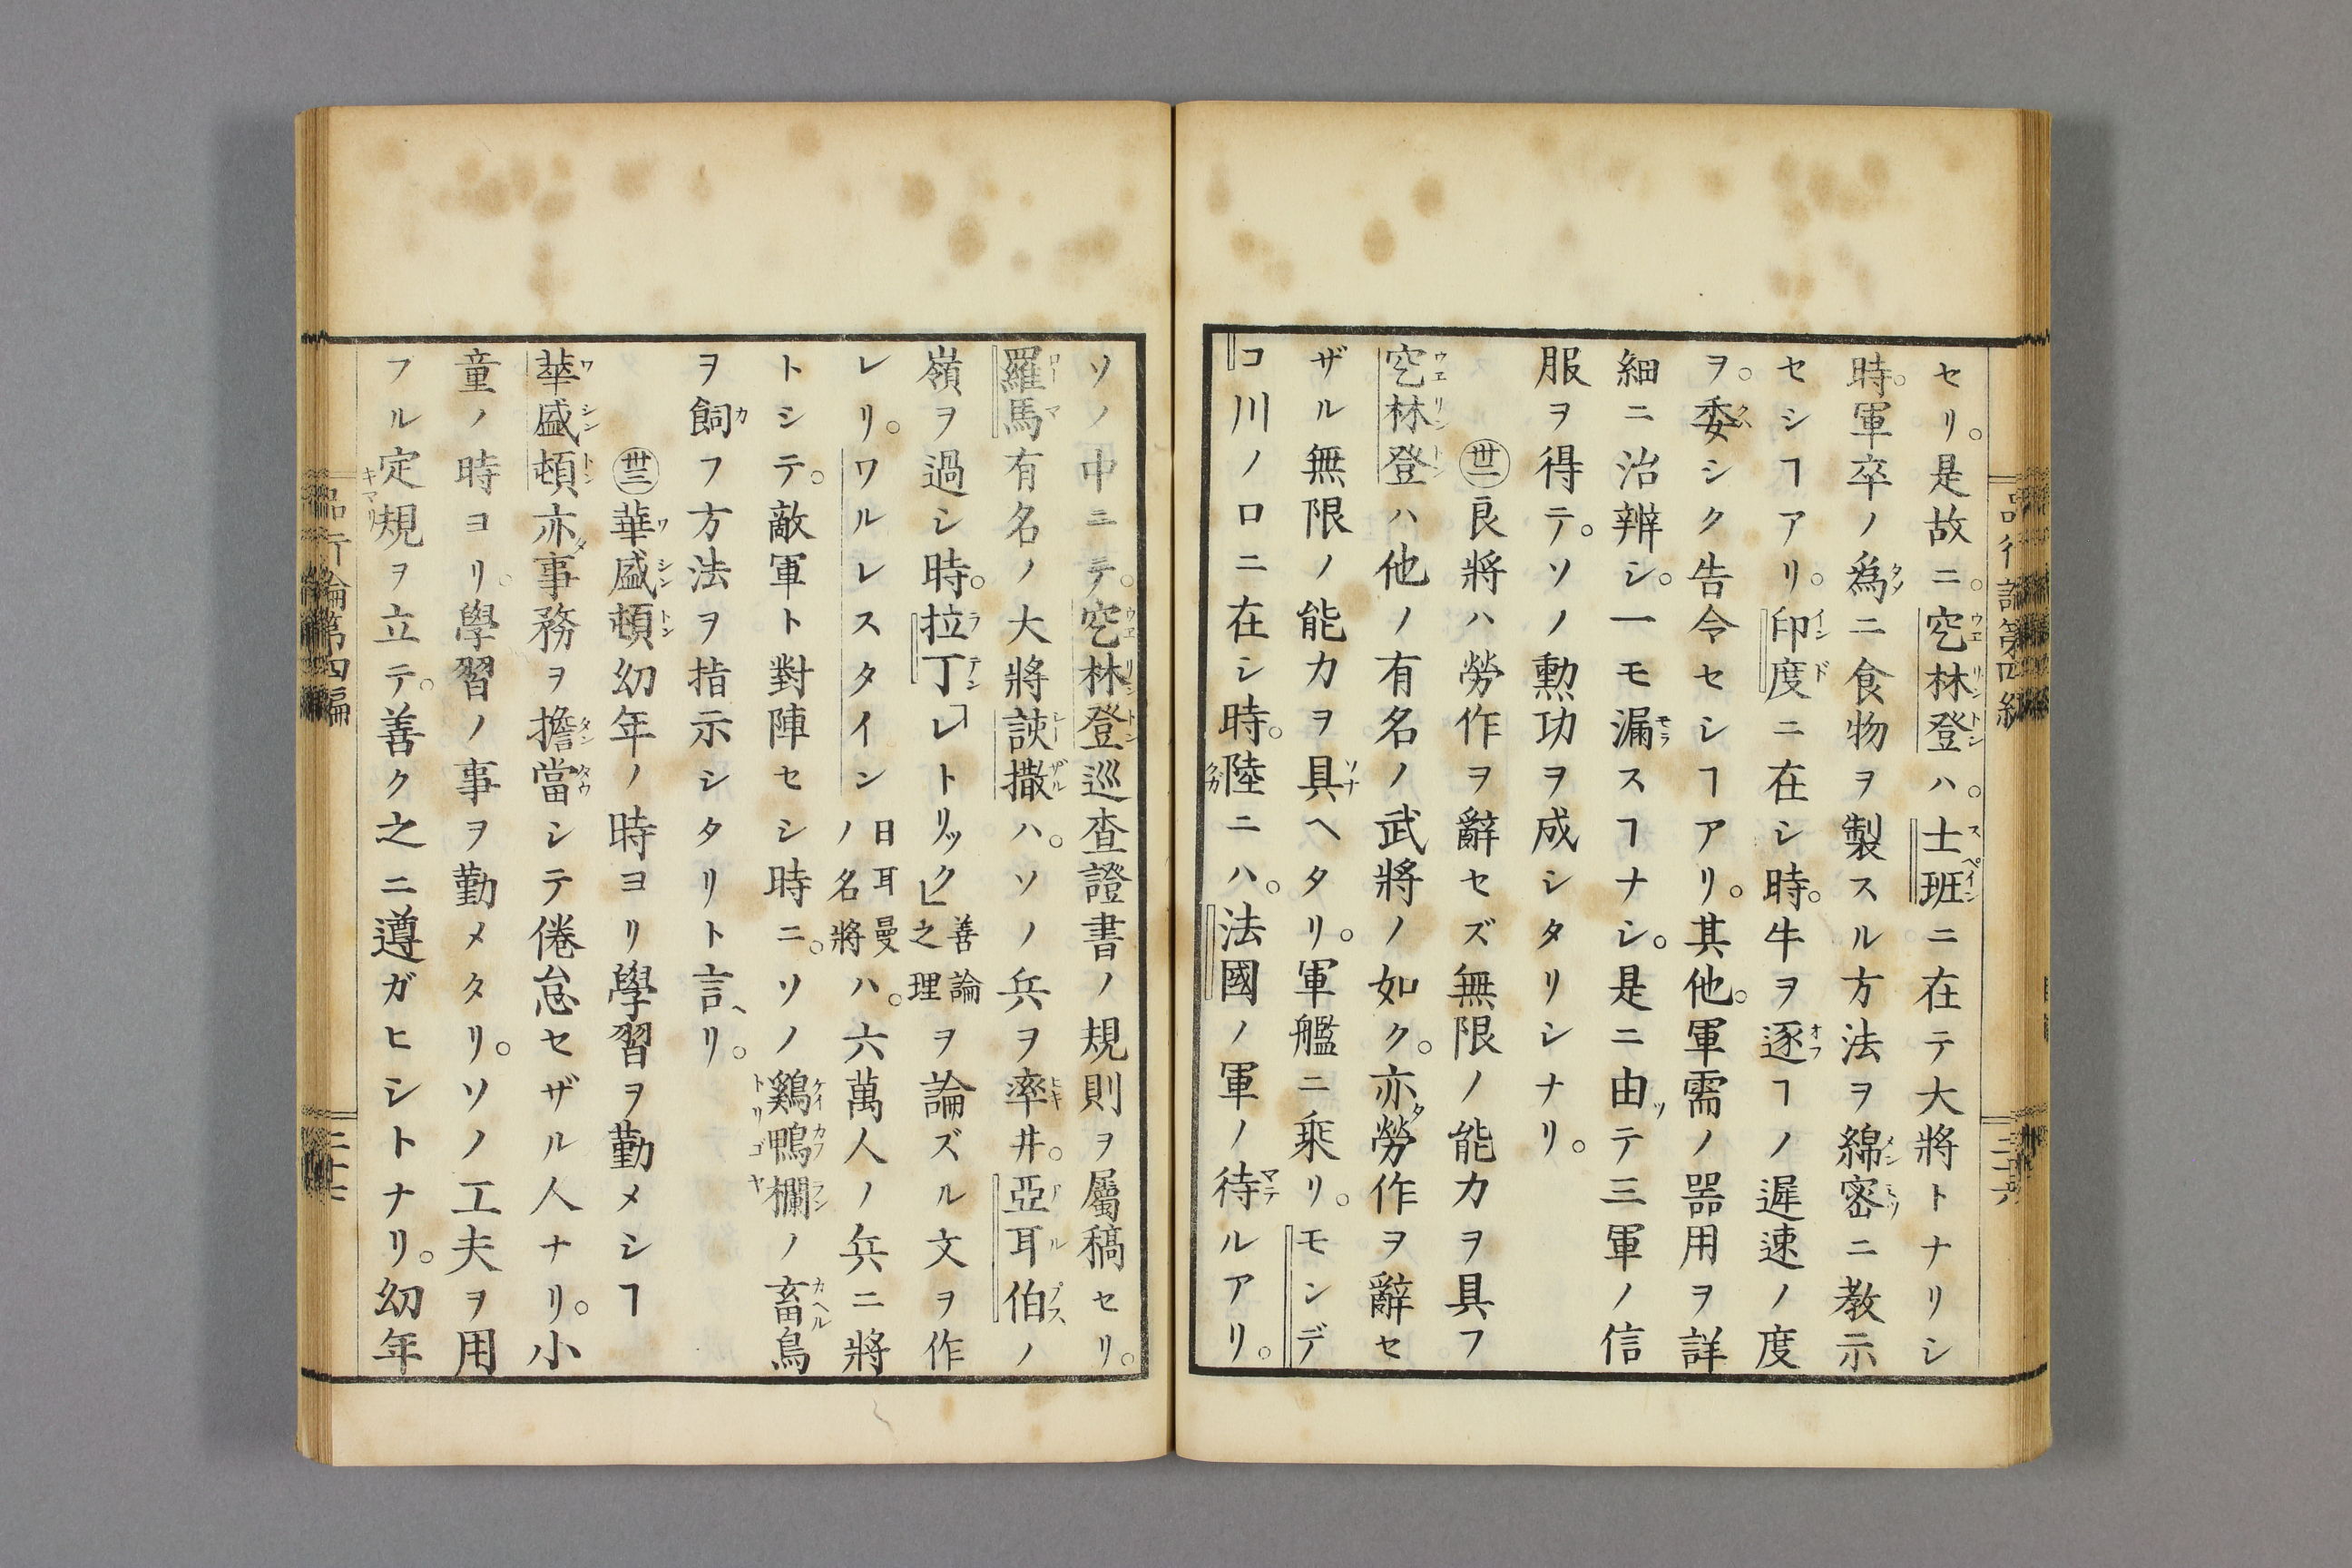 セリ。是故ニ。空林登ハ。士班ニ在テ大將トナリシ
時。軍卒ノ爲ニ食物ヲ製スル方法ヲ綿密ニ教示
セシヿアリ。印度ニ在シ時。牛ヲ逐フヿノ遲速ノ度
ヲ。委シク告令セシヿアリ。其他。軍需ノ器用ヲ詳
細ニ治辨シ。一モ漏スヿナシ。是ニ由テ三軍ノ信
服ヲ得テ。ソノ勲功ヲ成シタリシナリ。
良將ハ勞作ヲ辭セズ無限ノ能力ヲ具フ
空林登ハ他ノ有名ノ武將ノ如ク。亦勞作ヲ辭セ
ザル無限ノ能力ヲ具ヘタリ。軍艦ニ乘リ。モンデ
コ川ノ口ニ在シ時。陸ニハ。法國ノ軍ノ待ルアリ。
ソノ中ニテ。空林登巡査證書ノ規則ヲ屬稿セリ。
羅馬有名ノ大將該撒ハ。ソノ兵ヲ率井。亞耳伯ノ
嶺ヲ過シ時。拉丁「レトリック」善論之理ヲ論ズル文ヲ作
レリ。ワルレスタイン日耳曼ノ名將ハ。六萬人ノ兵ニ將
トシテ。敵軍ト對陣セシ時ニ。ソノ鷄鴨欄ノ畜鳥
ヲ飼フ方法ヲ指示シタリト言ヘリ。
華盛頓幼年ノ時ヨリ學習ヲ勤メシヿ
華盛頓亦事務ヲ擔當シテ倦怠セザル人ナリ。小
童ノ時ヨリ。學習ノ事ヲ勤メタリ。ソノ工夫ヲ用
フル定規ヲ立テ。善ク之ニ遵ガヒシトナリ。幼年
品行論第四編